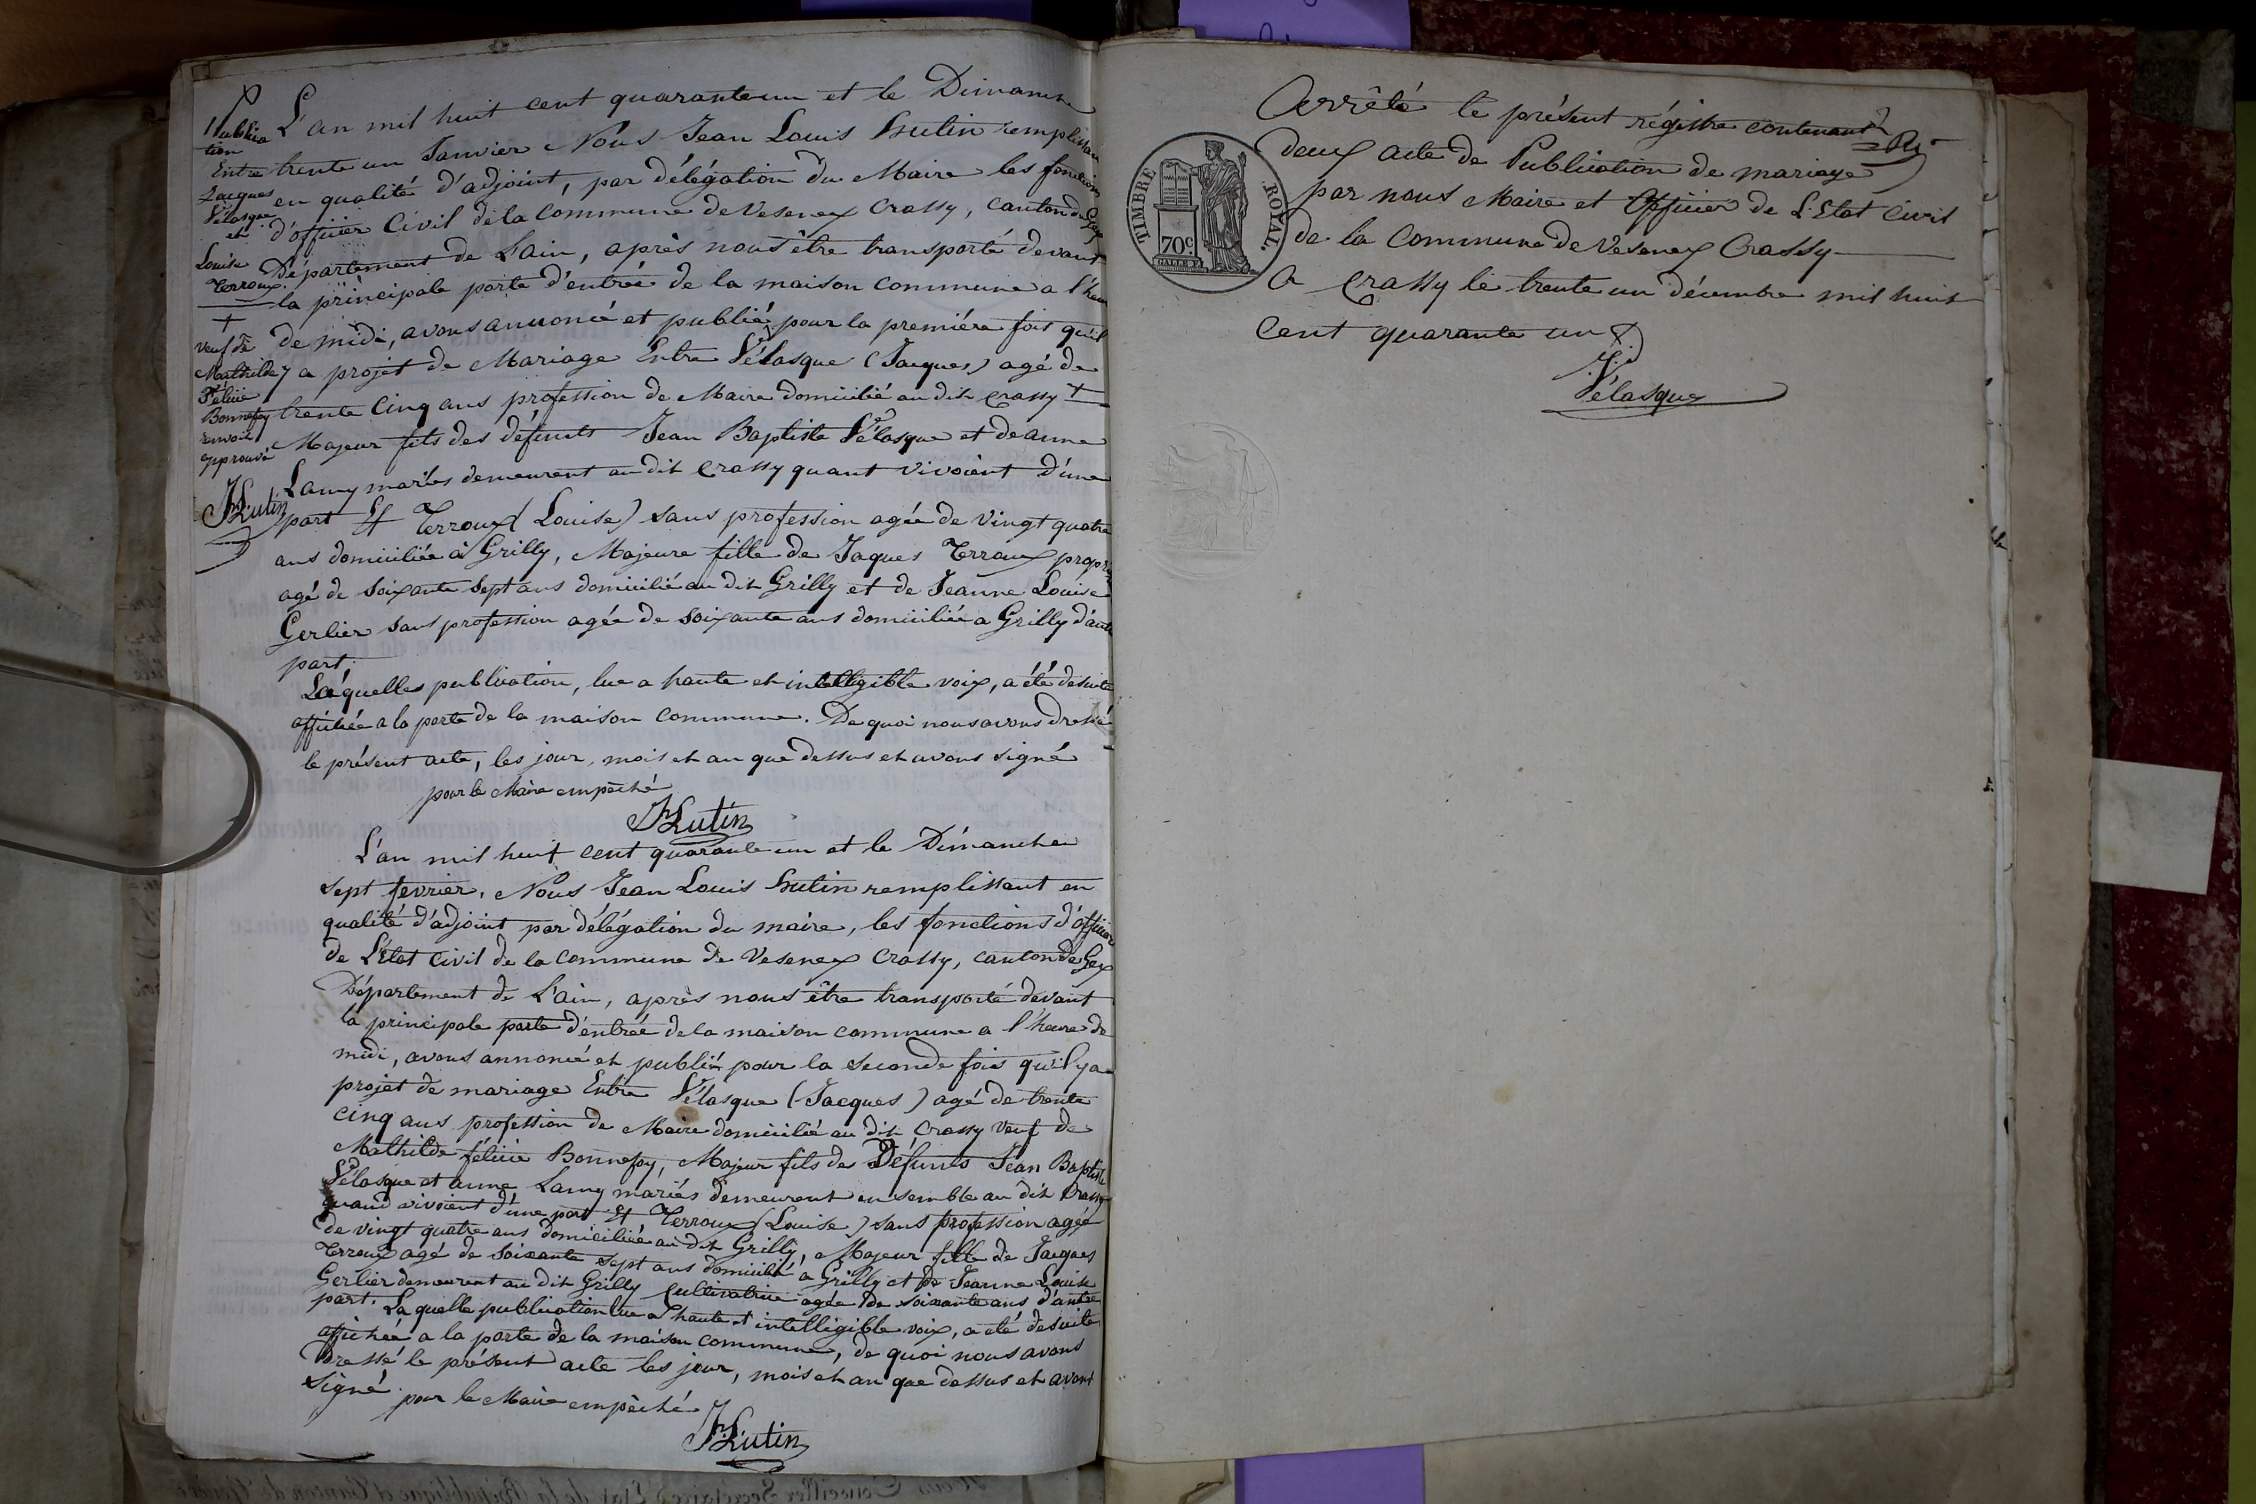 Publica
tion
Entre
Jacques
Vélasque
et
Louise
Terroux.
+
veuf de
Mathilde
Félicie
Bonnefoy
renvoi
approuvé
JLutin
L'an mil huit cent quarante un et le Dimanche
trente un Janvier Nous Jean Louis Hutin remplissant
en qualité d'adjoint, par délégation du Maire les fonctions
d'officier Civil de la Commune de Vesenex Crassy, canton de Gex
Département de Lain, après nous être transporté devant
la principale porte d'entrée de la maison commune a l'heure
de midi, avons annoncé et publié pour la première fois qu'il
y a projet de Mariage Entre Vélasque (Jacques) agé de
trente Cinq ans profession de Maire domicilié au dit Crassy +
Majeur fils des défunts Jean Baptiste Vélasque et de anne
Lamy mariés demeurent au dit Crassy quant vivoient d'une
part Et Terroux (Louise) sans profession agée de Vingt quatre
ans domiciliée à Grilly, Majeure fille de Jaques Terroux propre
agé de soixante sept ans domicilié au dit Grilly et de Jeanne Louise
Gerlier sans profession agée de soixante ans domiciliée a Grilly d'autre
part.
Laquelles publication, lue a haute et intelligible voix, a été desuite
affichée a la porte de la maison commune. De quoi nous avons dressé
le présent acte, les jour, mois et an que dessus et avons signé
pour le Maire empêché
JLutin
L'an mil huit cent quarante un et le Dimanche
sept fevrier, Nous Jean Louis Hutin remplissant en
qualité d'adjoint par délégation du maire, les fonctions d'officier
de L'Etat Civil de la Commune de Vesenex Crassy, canton de Gex
Département de L'ain, après nous être transporté devant
la principale porte d'entrée de la maison commune a l'heure de
midi, avons annoncé et publié pour la seconde fois qu'il y a
projet de mariage Entre Vélasque (Jacques) agé de trente
cinq ans profession de Maire domicilié au dit Crassy veuf de
Mathilde félicie Bonnefoy, Majeur fils des Défunts Jean Baptiste
Vélasque et anne Lamy mariés demeurent ensemble au dit Crassy
quand vivoient d'une part Et Terroux (Louise) sans profession agée
de vingt quatre ans domiciliée au dit Grilly, Majeur fille de Jacques
Terroux agé de soixante sept ans domicilié à Grilly et de Jeanne Louise
Gerlier demeurent au dit Grilly Cultivatrice agée de soixante ans d'autre
part. La quelle publication lue a haute et intelligible voix, a été desuite
affichée a la porte de la maison commune, de quoi nous avons
dressé le présent acte les jour, mois et an que dessus et avons
signé pour le Maire empêché
JLutin
Arrêté le présent régistre contenant
deux acte de Publication de mariage
par nous Maire et Officier de L'Etat Civil
de la Commune de Vesenex Crassy
A Crassy le trente un décembre mil huit
cent quarante un
Vélasque
TIMBRE ROYAL.
70c